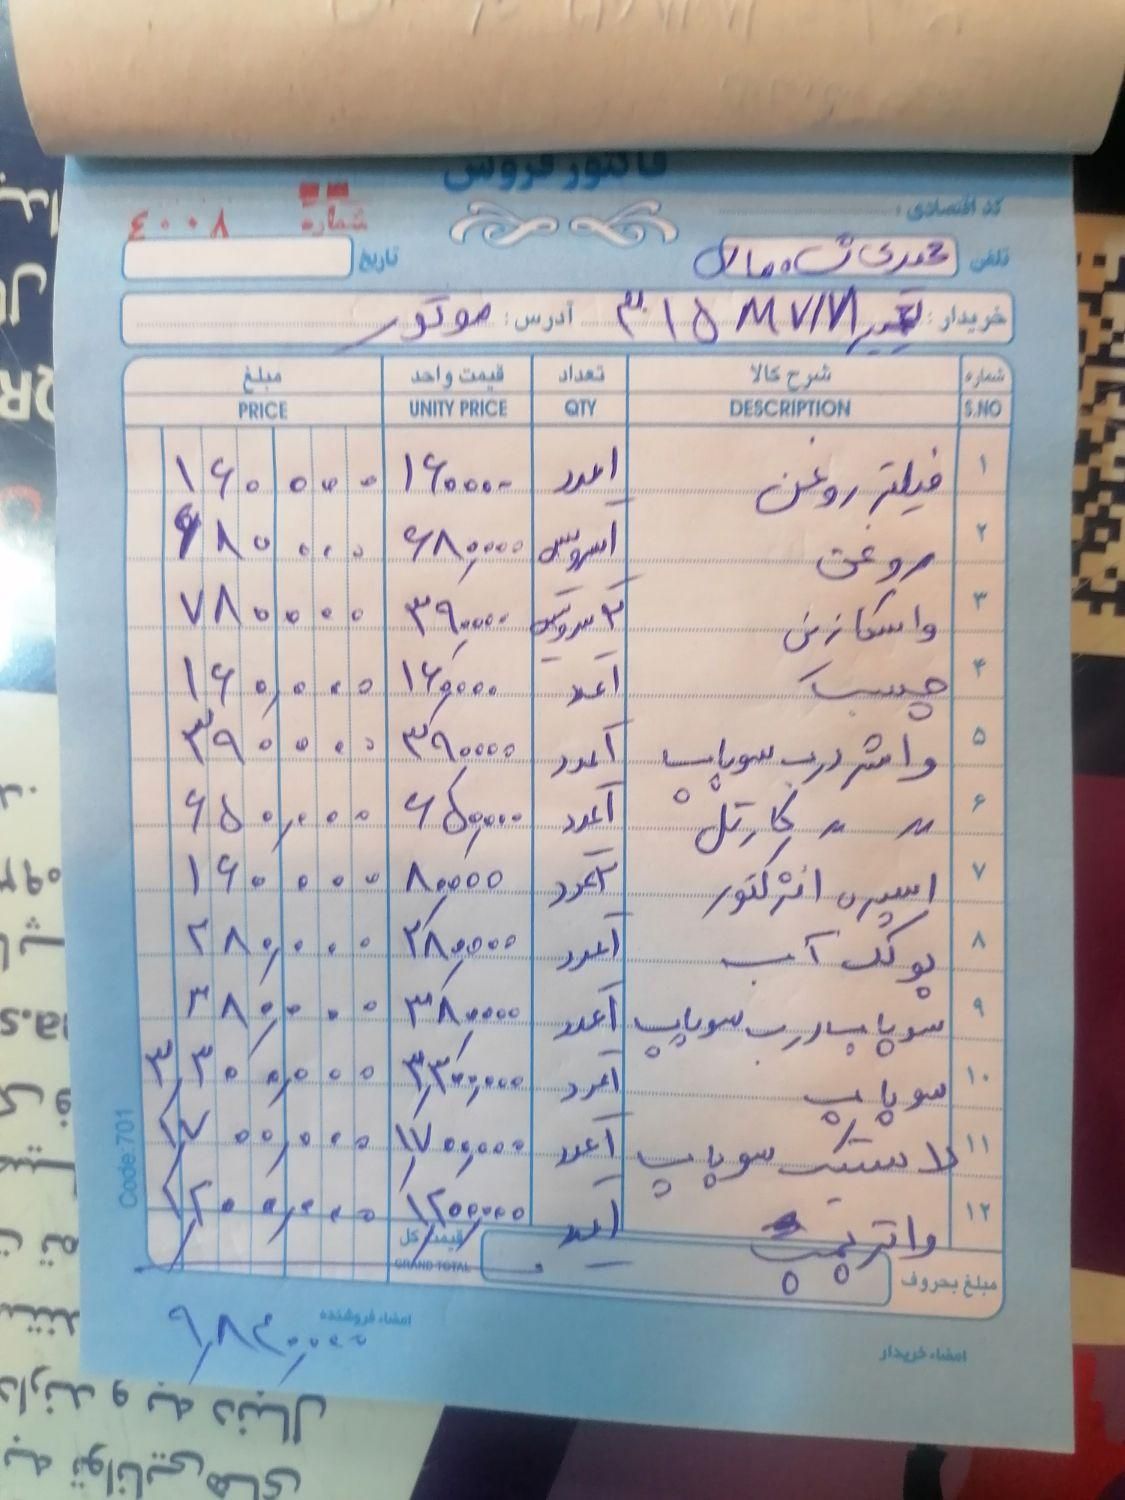 فاکتور فروش
کد اقتصادی :
شماره ۴۰۰۸
تلفن
تاریخ
خریدار : تعمیر MVM ۳۱۵ آدرس : موتور
شماره شرح کالا تعداد قیمت واحد مبلغ
S.NO DESCRIPTION QTY UNITY PRICE PRICE
۱ فیلتر روغن ۱عدد ۱۶۰۰۰۰ ۱۶۰۰۰۰
۲ روغن ۱سرویس ۶۸۰,۰۰۰ ۶۸۰۰۰۰
۳ واسکازین ۲سرویس ۳۹۰,۰۰۰ ۷۸۰۰۰۰
۴ چسب ۱عدد ۱۶۰,۰۰۰ ۱۶۰,۰۰۰
۵ واشر درب سوپاپ ۱عدد ۳۹۰,۰۰۰ ۳۹۰۰۰۰
۶ " " کارتل ۱عدد ۶۵۰,۰۰۰ ۶۵۰,۰۰۰
۷ اسپره انژکتور ۲عدد ۸۰,۰۰۰ ۱۶۰۰۰۰
۸ پولک آب ۱عدد ۲۸۰,۰۰۰ ۲۸۰,۰۰۰
۹ سوپاپ درب سوپاپ ۱عدد ۳۸۰,۰۰۰ ۳۸۰,۰۰۰
۱۰ سوپاپ ۱عدد ۳,۳۰۰,۰۰۰ ۳,۳۰۰,۰۰۰
۱۱ لاستیک سوپاپ ۱عدد ۱,۷۰۰,۰۰۰ ۱,۷۰۰,۰۰۰
۱۲ واترپمپ ۱عدد ۱,۲۰۰,۰۰۰ ۱,۲۰۰,۰۰۰
مبلغ بحروف قیمت کل
GRAND TOTAL
امضاء فروشنده ۹,۸۴۰,۰۰۰
امضاء خریدار
Code:701